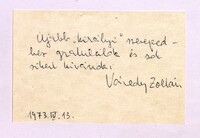 Ujabb "királyi" szereped-
hez gratulálok és sok
sikert kívánok:
Várady Zoltán
1973. IV. 13.